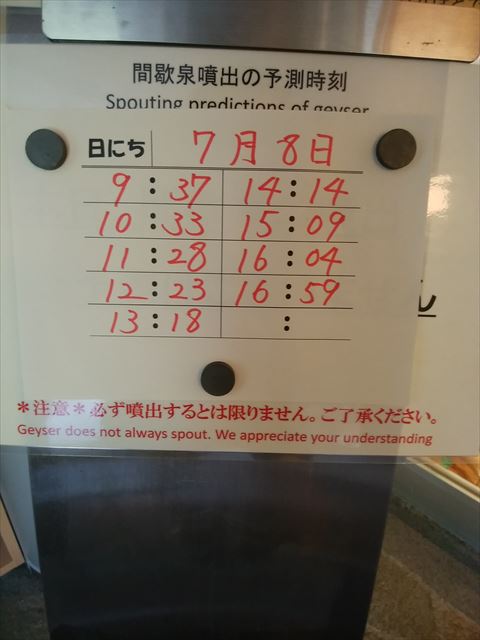 間歇泉噴出の予測時刻
Spouting predictions of geyser
日にち 7月8日
9:37 14:14
10:33 15:09
11:28 16:04
12:23 16:59
13:18 :
ん
＊注意＊必ず噴出するとは限りません。ご了承ください。
Geyser does not always spout. We appreciate your understanding